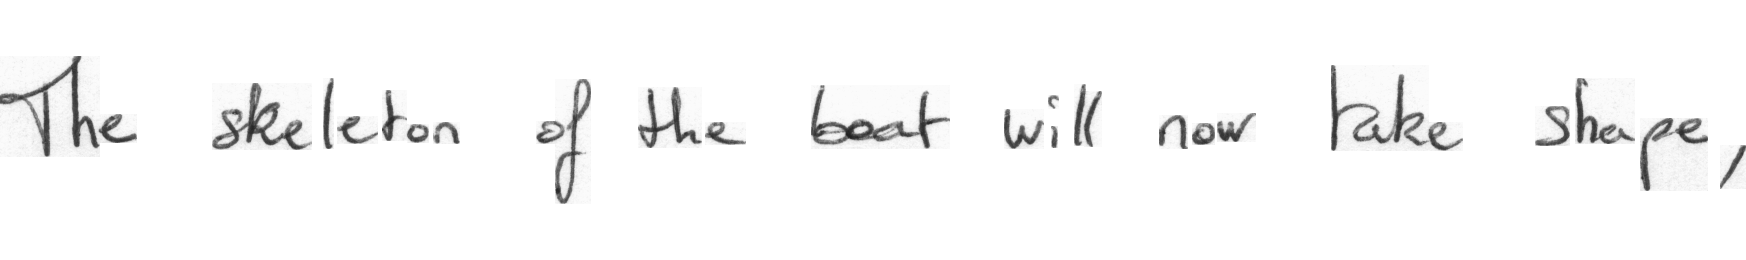 The skeleton of the boat will now take shape,